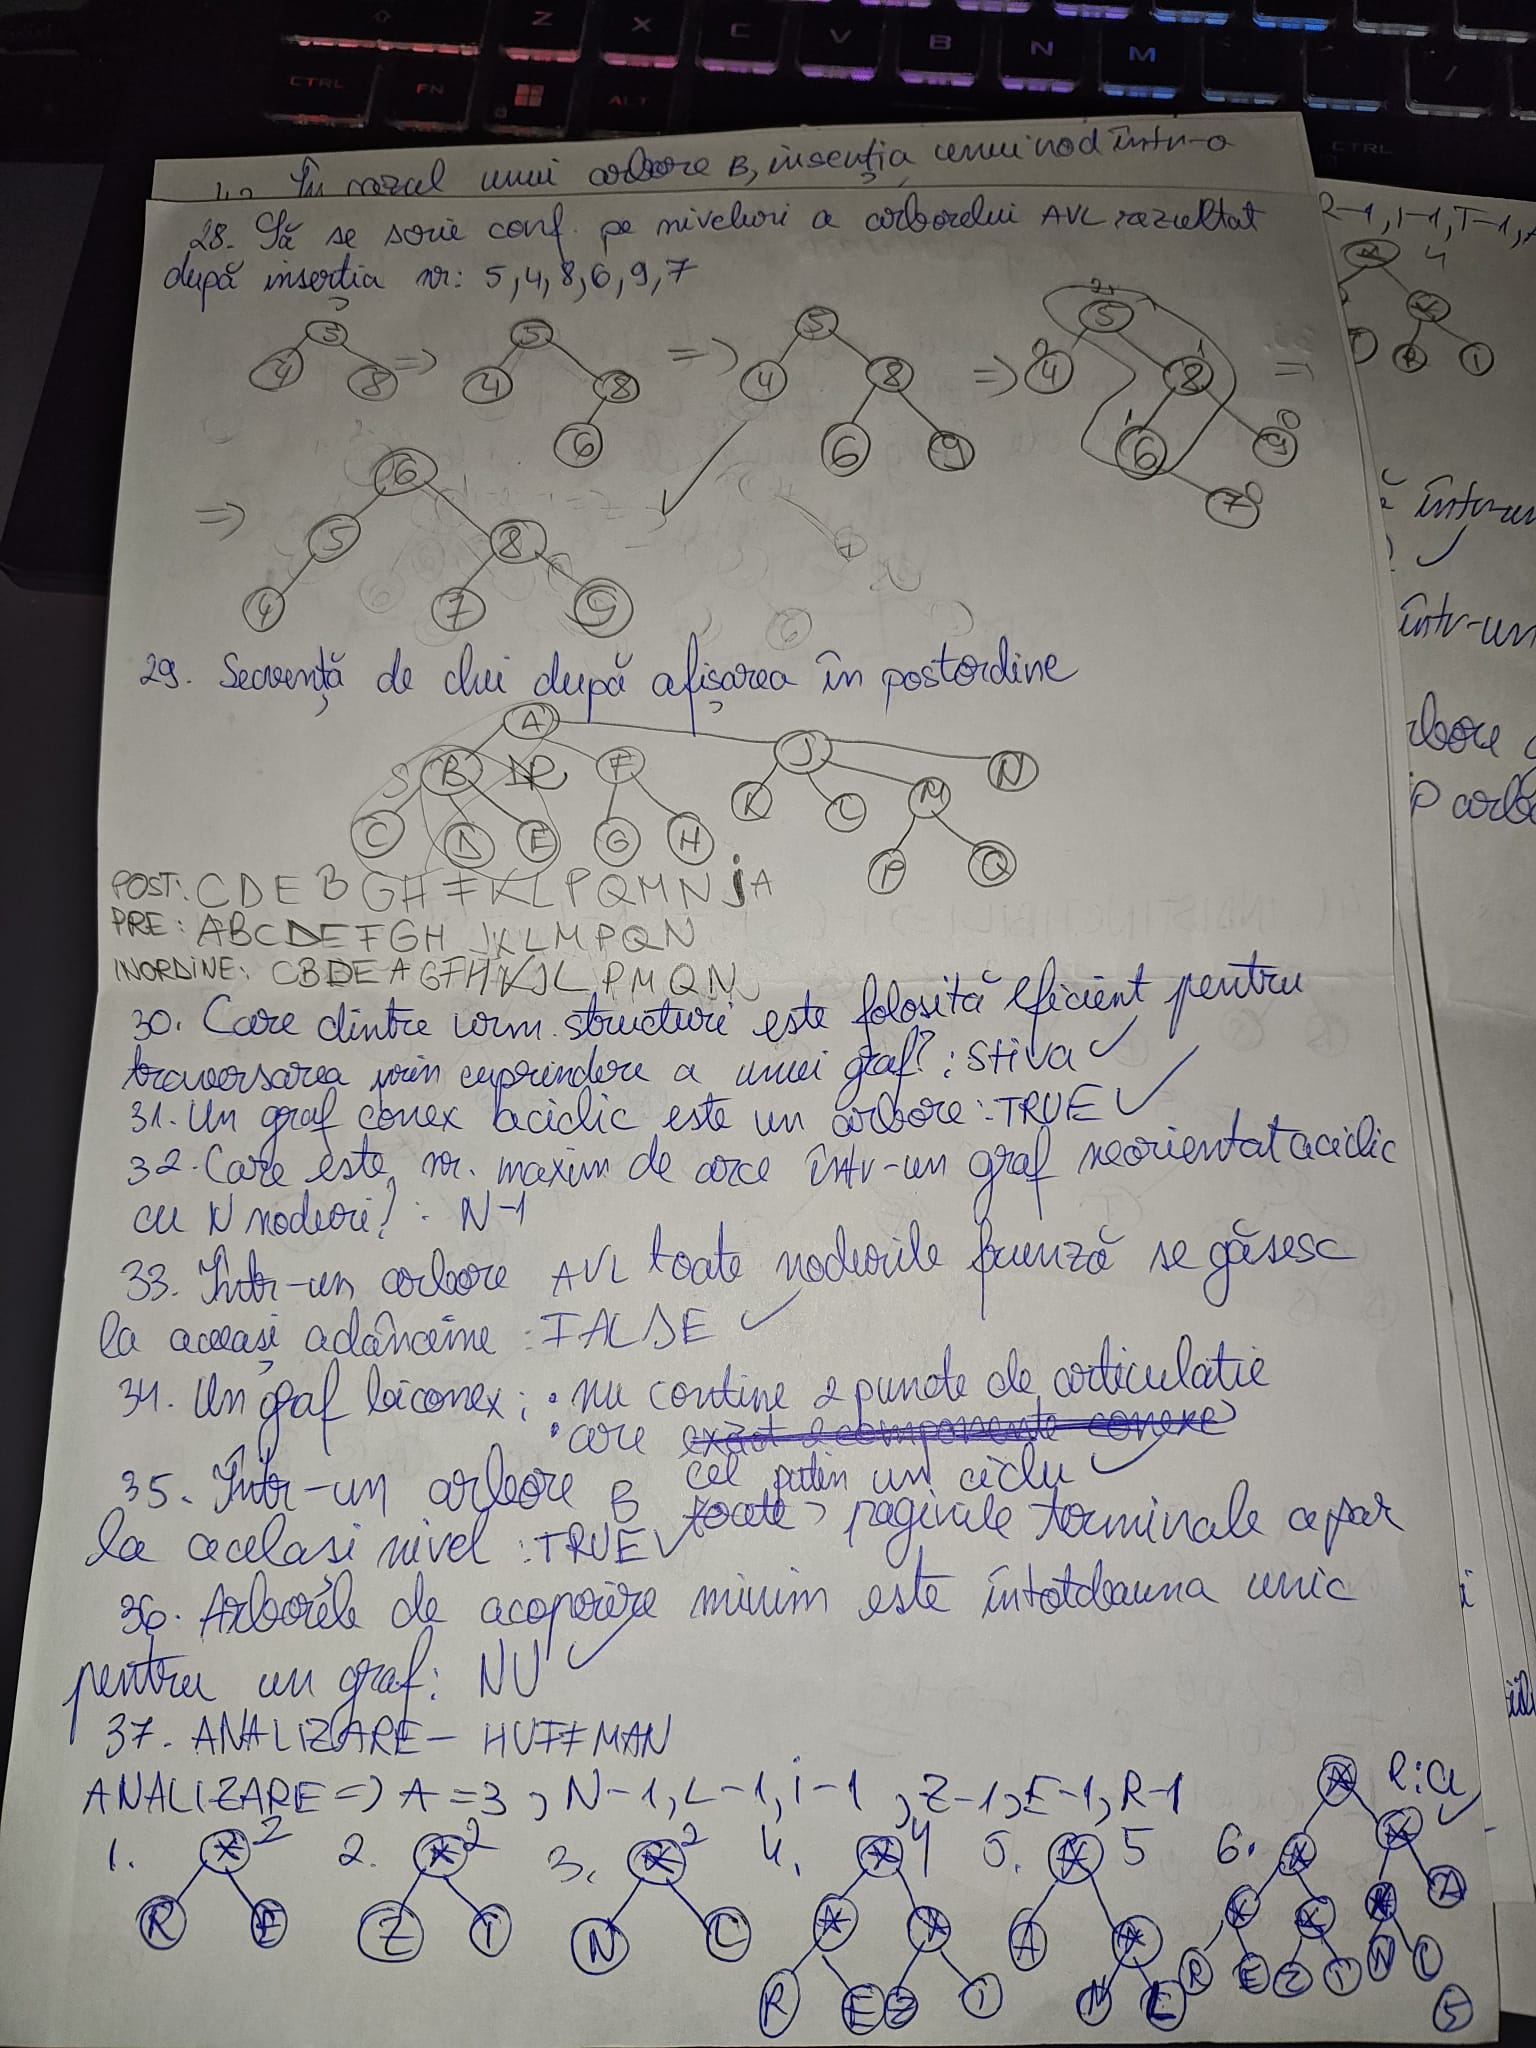 Z X C V B N M
CTRL FN ALT CTRL
În cazul unui arbore B, inserția unui nod într-o
28. Să se scrie conf. pe niveluri a arborelui AVL rezultat
după inserția nr: 5,4,8,6,9,7
5 4 8 => 5 4 8 6 => 5 4 8 6 9 => 2 5 0 4 1 8 1 6 0 9 7 0 =>
=> 6 5 8 4 7 9
29. Secvență de chei după afișarea în postordine
A
S B DR F J N
C D E G H K L M
P Q
POST: C D E B G H F K L P Q M N J A
PRE: A B C D E F G H J K L M P Q N
INORDINE: C B D E A G F H K J L P M Q N
30. Care dintre urm. structuri este folosită eficient pentru
traversarea prin cuprindere a unui graf? : STIVA ✓
31. Un graf conex aciclic este un arbore : TRUE ✓
32. Care este nr. maxim de arce într-un graf neorientat aciclic
cu N noduri? : N-1
33. Într-un arbore AVL toate nodurile frunză se găsesc
la aceeași adâncime : FALSE ✓
34. Un graf biconex : • nu contine 2 puncte de articulatie
• are exact 2 componente conexe
cel putin un ciclu ✓
35. Într-un arbore B toate paginile terminale apar
la acelasi nivel : TRUE ✓
36. Arborele de acoperire minim este întotdeauna unic
pentru un graf : NU ✓
37. ANALIZARE - HUFFMAN
ANALIZARE => A = 3, N-1, L-1, i-1, Z-1, E-1, R-1
1. * 2 R E
2. * 2 Z I
3. * 2 N L
4. * 4 * * R E Z I
5. * 5 A * N L
6. * * * * * * A R E Z I N L R:a ✓
5
R-1, I-1, T-1, A
4
R I
într-un
✓
într-un